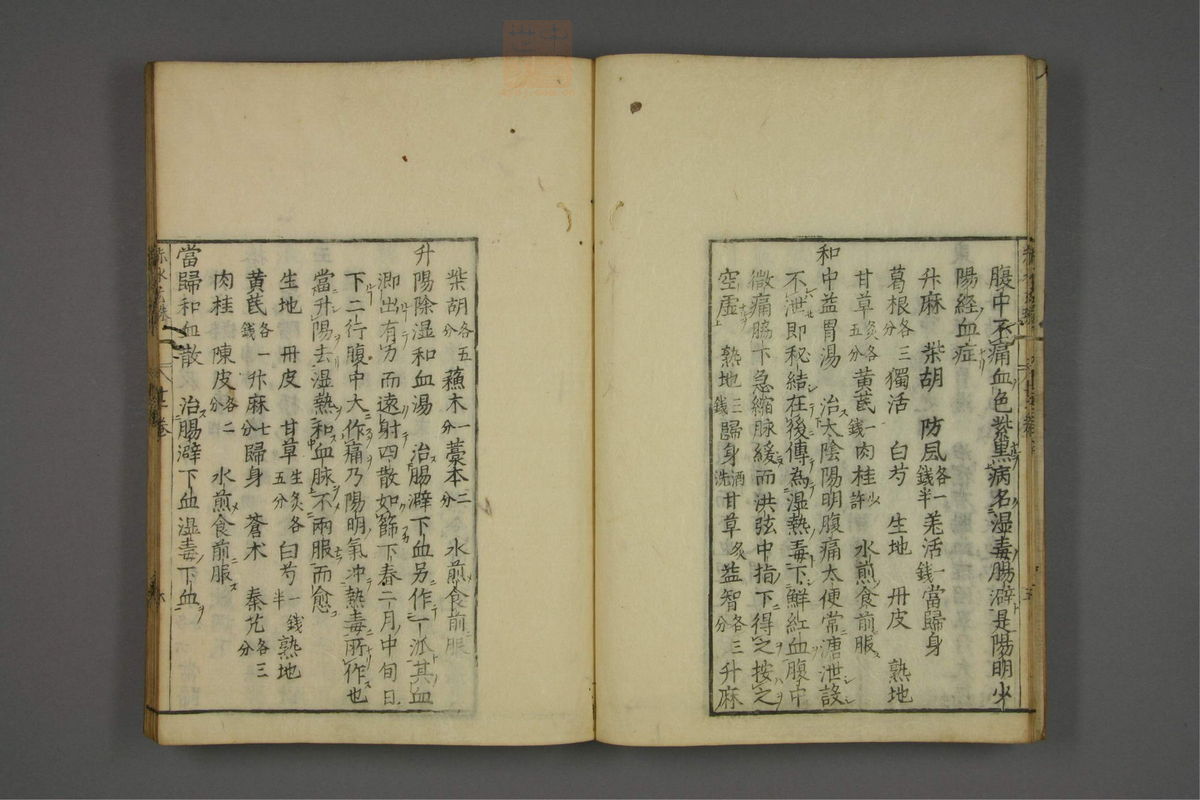 腹中不痛血色紫黒病名湿毒腸澼是陽明少
陽経血症
升麻 柴胡 防風各一錢半 羌活一錢 當歸身
葛根各三分 獨活 白芍 生地 丹皮 熟地
甘草炙各五分 黄芪一錢 肉桂少許 水煎食前服
和中益胃湯 治太陰陽明腹痛大便常溏泄設
不泄即秘結在後傳為湿熱毒下鮮紅血腹中
微痛脇下急縮脉緩而洪弦中指下得之按之
空虚 熟地三錢 歸身酒洗 甘草炙 益智各三分 升麻
柴胡各五分 蘓木一分 藁本二分 水煎食前服
升陽除湿和血湯 治腸澼下血另作一派其血
喞出有力而遠射四散如篩下春二月中旬日
下二行腹中大作痛乃陽明氣冲熱毒所作也
當升陽去湿熱和血脉不兩服而愈
生地 丹皮 甘草生炙各五分 白芍一錢半 熟地
黄芪各一錢 升麻七分 歸身 蒼木 秦艽各三分
肉桂 陳皮各二分 水煎食前服
當歸和血散 治腸澼下血湿毒下血